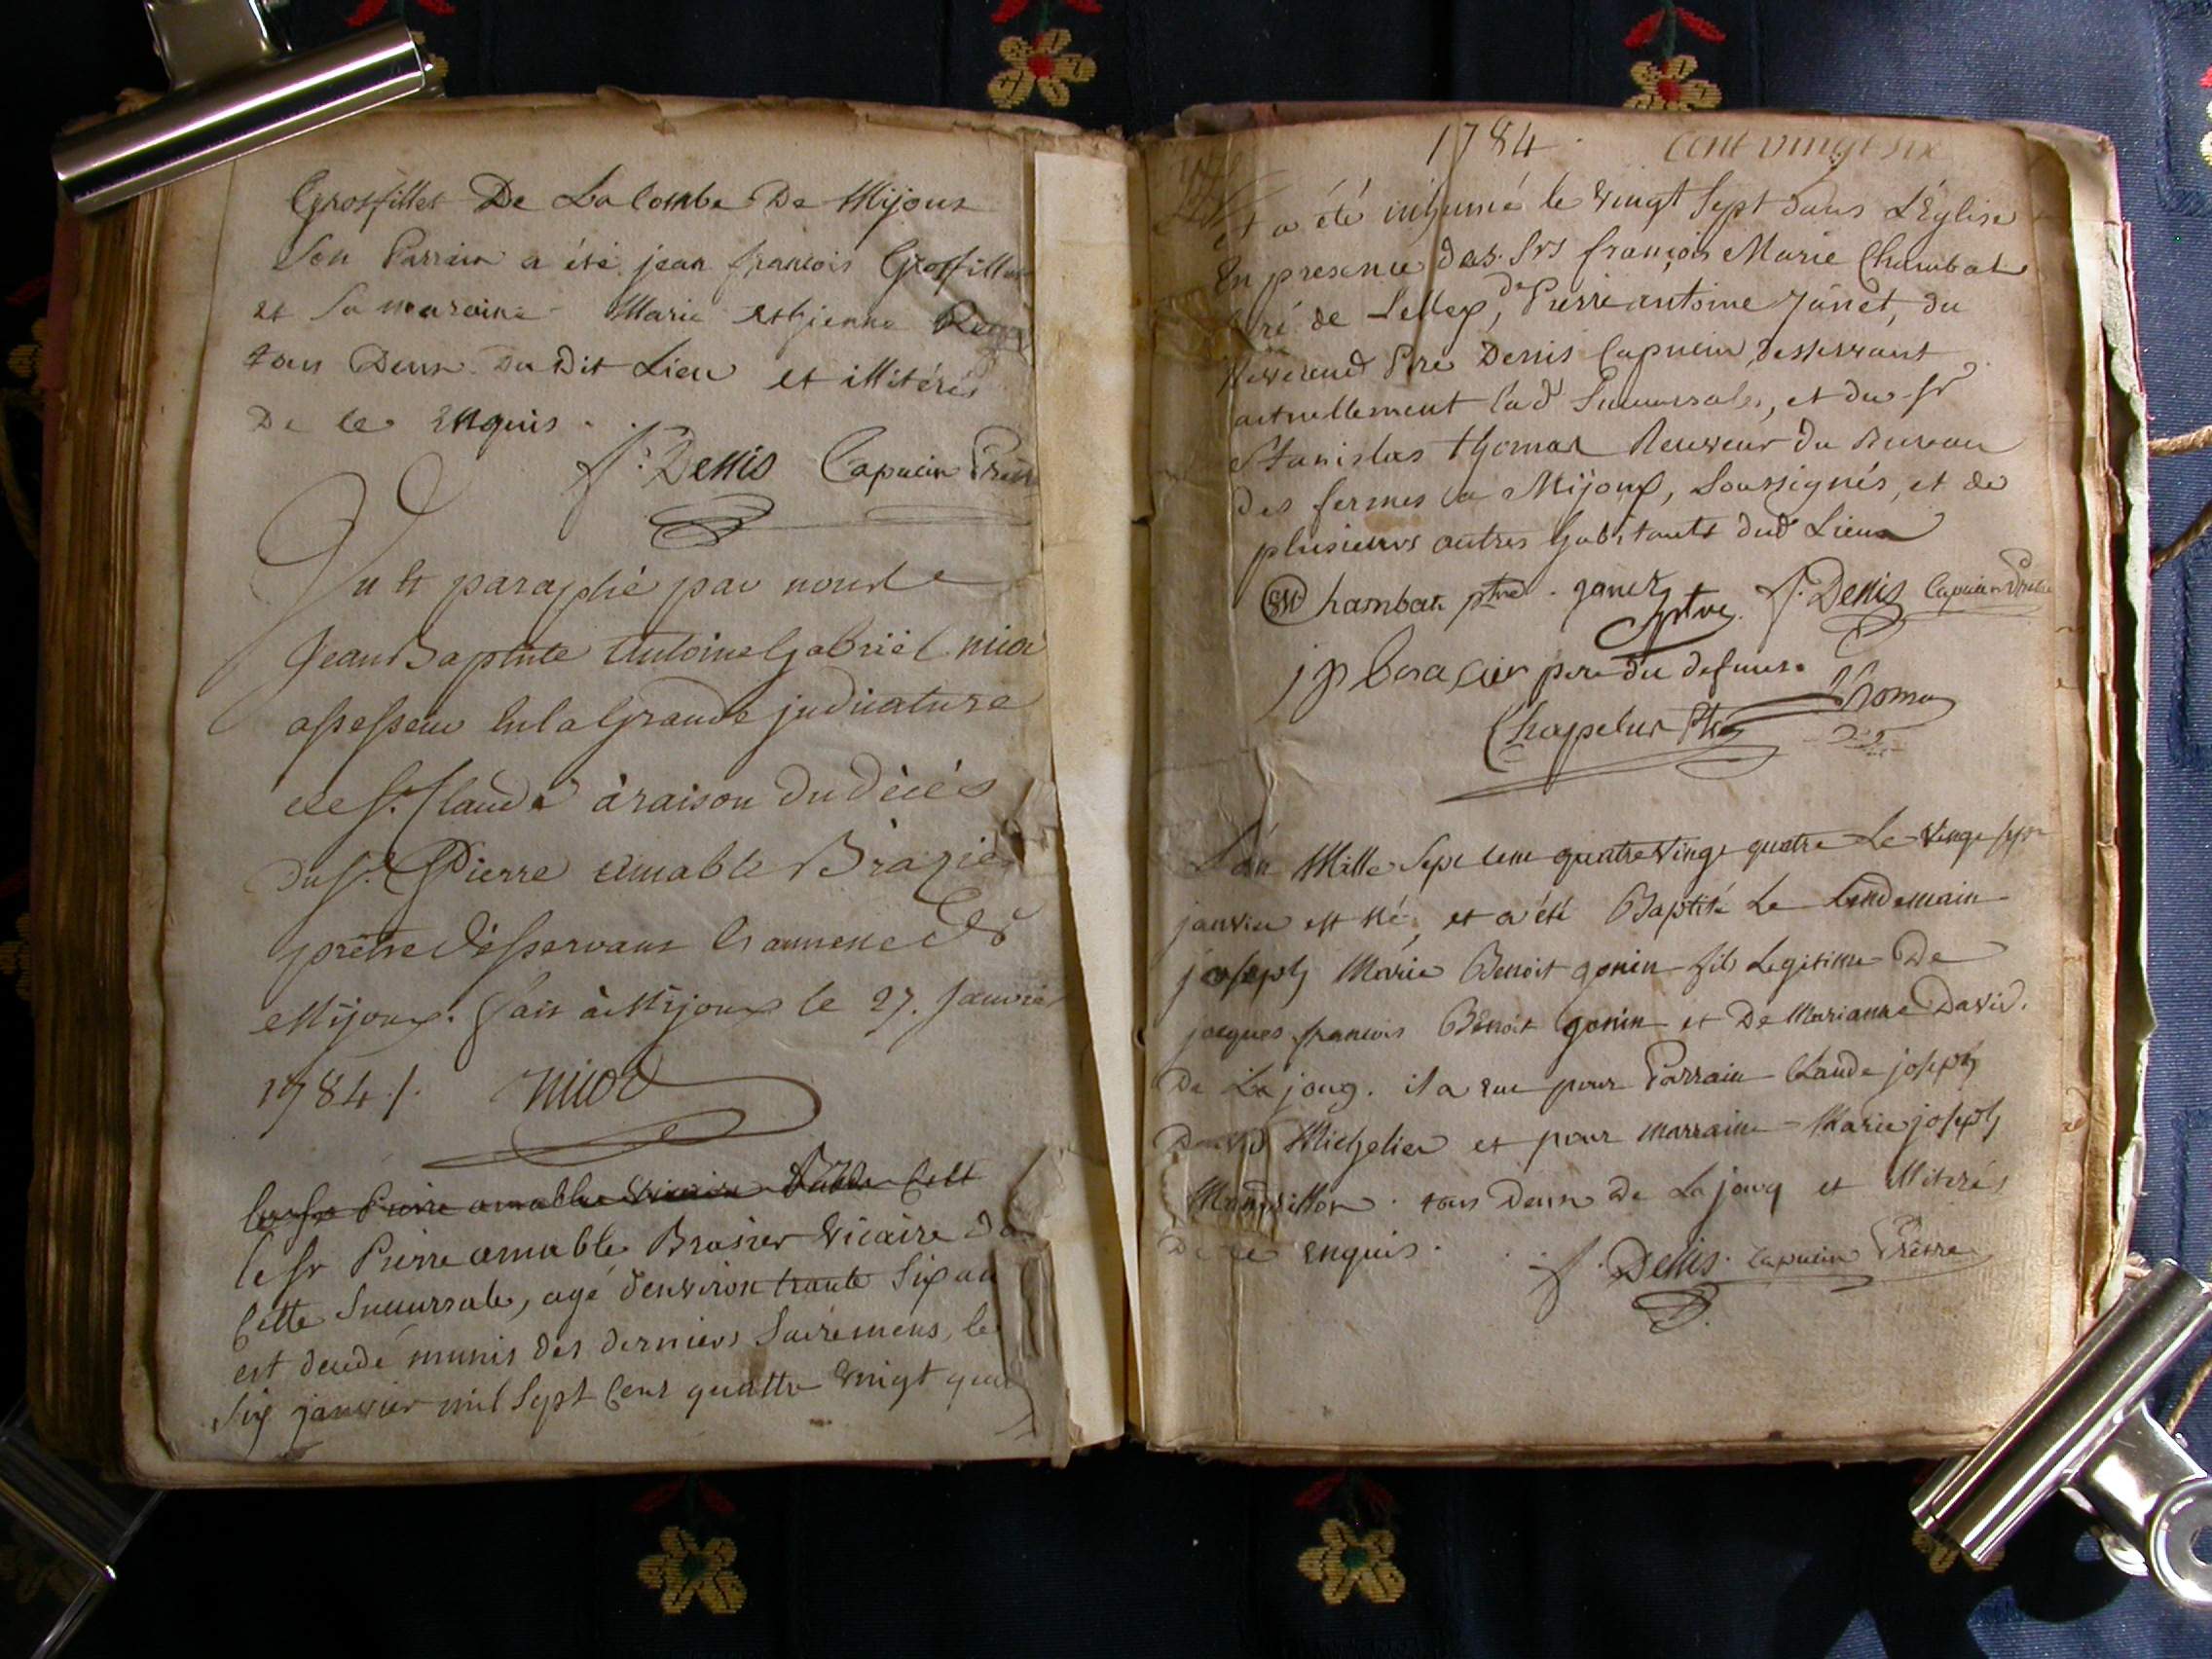 Grosfillet De La Combe De Mijoux
Son Parrain a été jean francois Grosfillet
et Sa maraine Marie Estjienne
tous Deux du Dit Lieu et illitérés
De ce Enquis.
f. Denis Capucin Pretre
Vu et paraphé par nous
Jean Baptiste Antoine Gabriel nicod
assesseur en la Grande judicature
de St. Claude à raison du décés
du Sr. Pierre amable Brazier
prêtre désservant l'annexe de
Mijoux. fait à Mijoux le 27. Janvier
1784 /. nicod
le sr Pierre amable
le sr Pierre amable Brasier Vicaire de
Cette Succursale, agé d'environ trante Six an
est decedé munis des derniers Sacremens, le
Six janvier mil Sept Cent quattre Vingt
1784. Cent vingt six
et a été inhumé le vingt Sept dans L'Eglise
En presence des Srs françois Marie Chambat
Curé de Lellex, Pierre antoine Janet, du
Reverend Pre Denis Capucin desservant
actuellement lad Succursale, et du sr
Stanislas thomas Receveur du Bureau
des fermes a Mijoux, Soussignés, et de
plusieurs autres habitants dud Lieux
Chambat ptre. janet ptre f. Denis Capucin Pretre
j p brasier pere du defunt. Thomas
Chapelut Ptre
L'an Mille Sept Cent quatre Vingt quatre Le Vingt sept
janvier est né, et a été Baptisé Le Lendemain
joseph Marie Benoit gonin fils Legitime De
jacques francois Benoit gonin et De Marianne David.
De La joug. il a eue pour Parrain Claude joseph
David Michelier et pour marraine Marie joseph
Mandrillon. tous Deux de La joug et illiterés
De ce enquis.
f. Denis. Capucin Prêtre